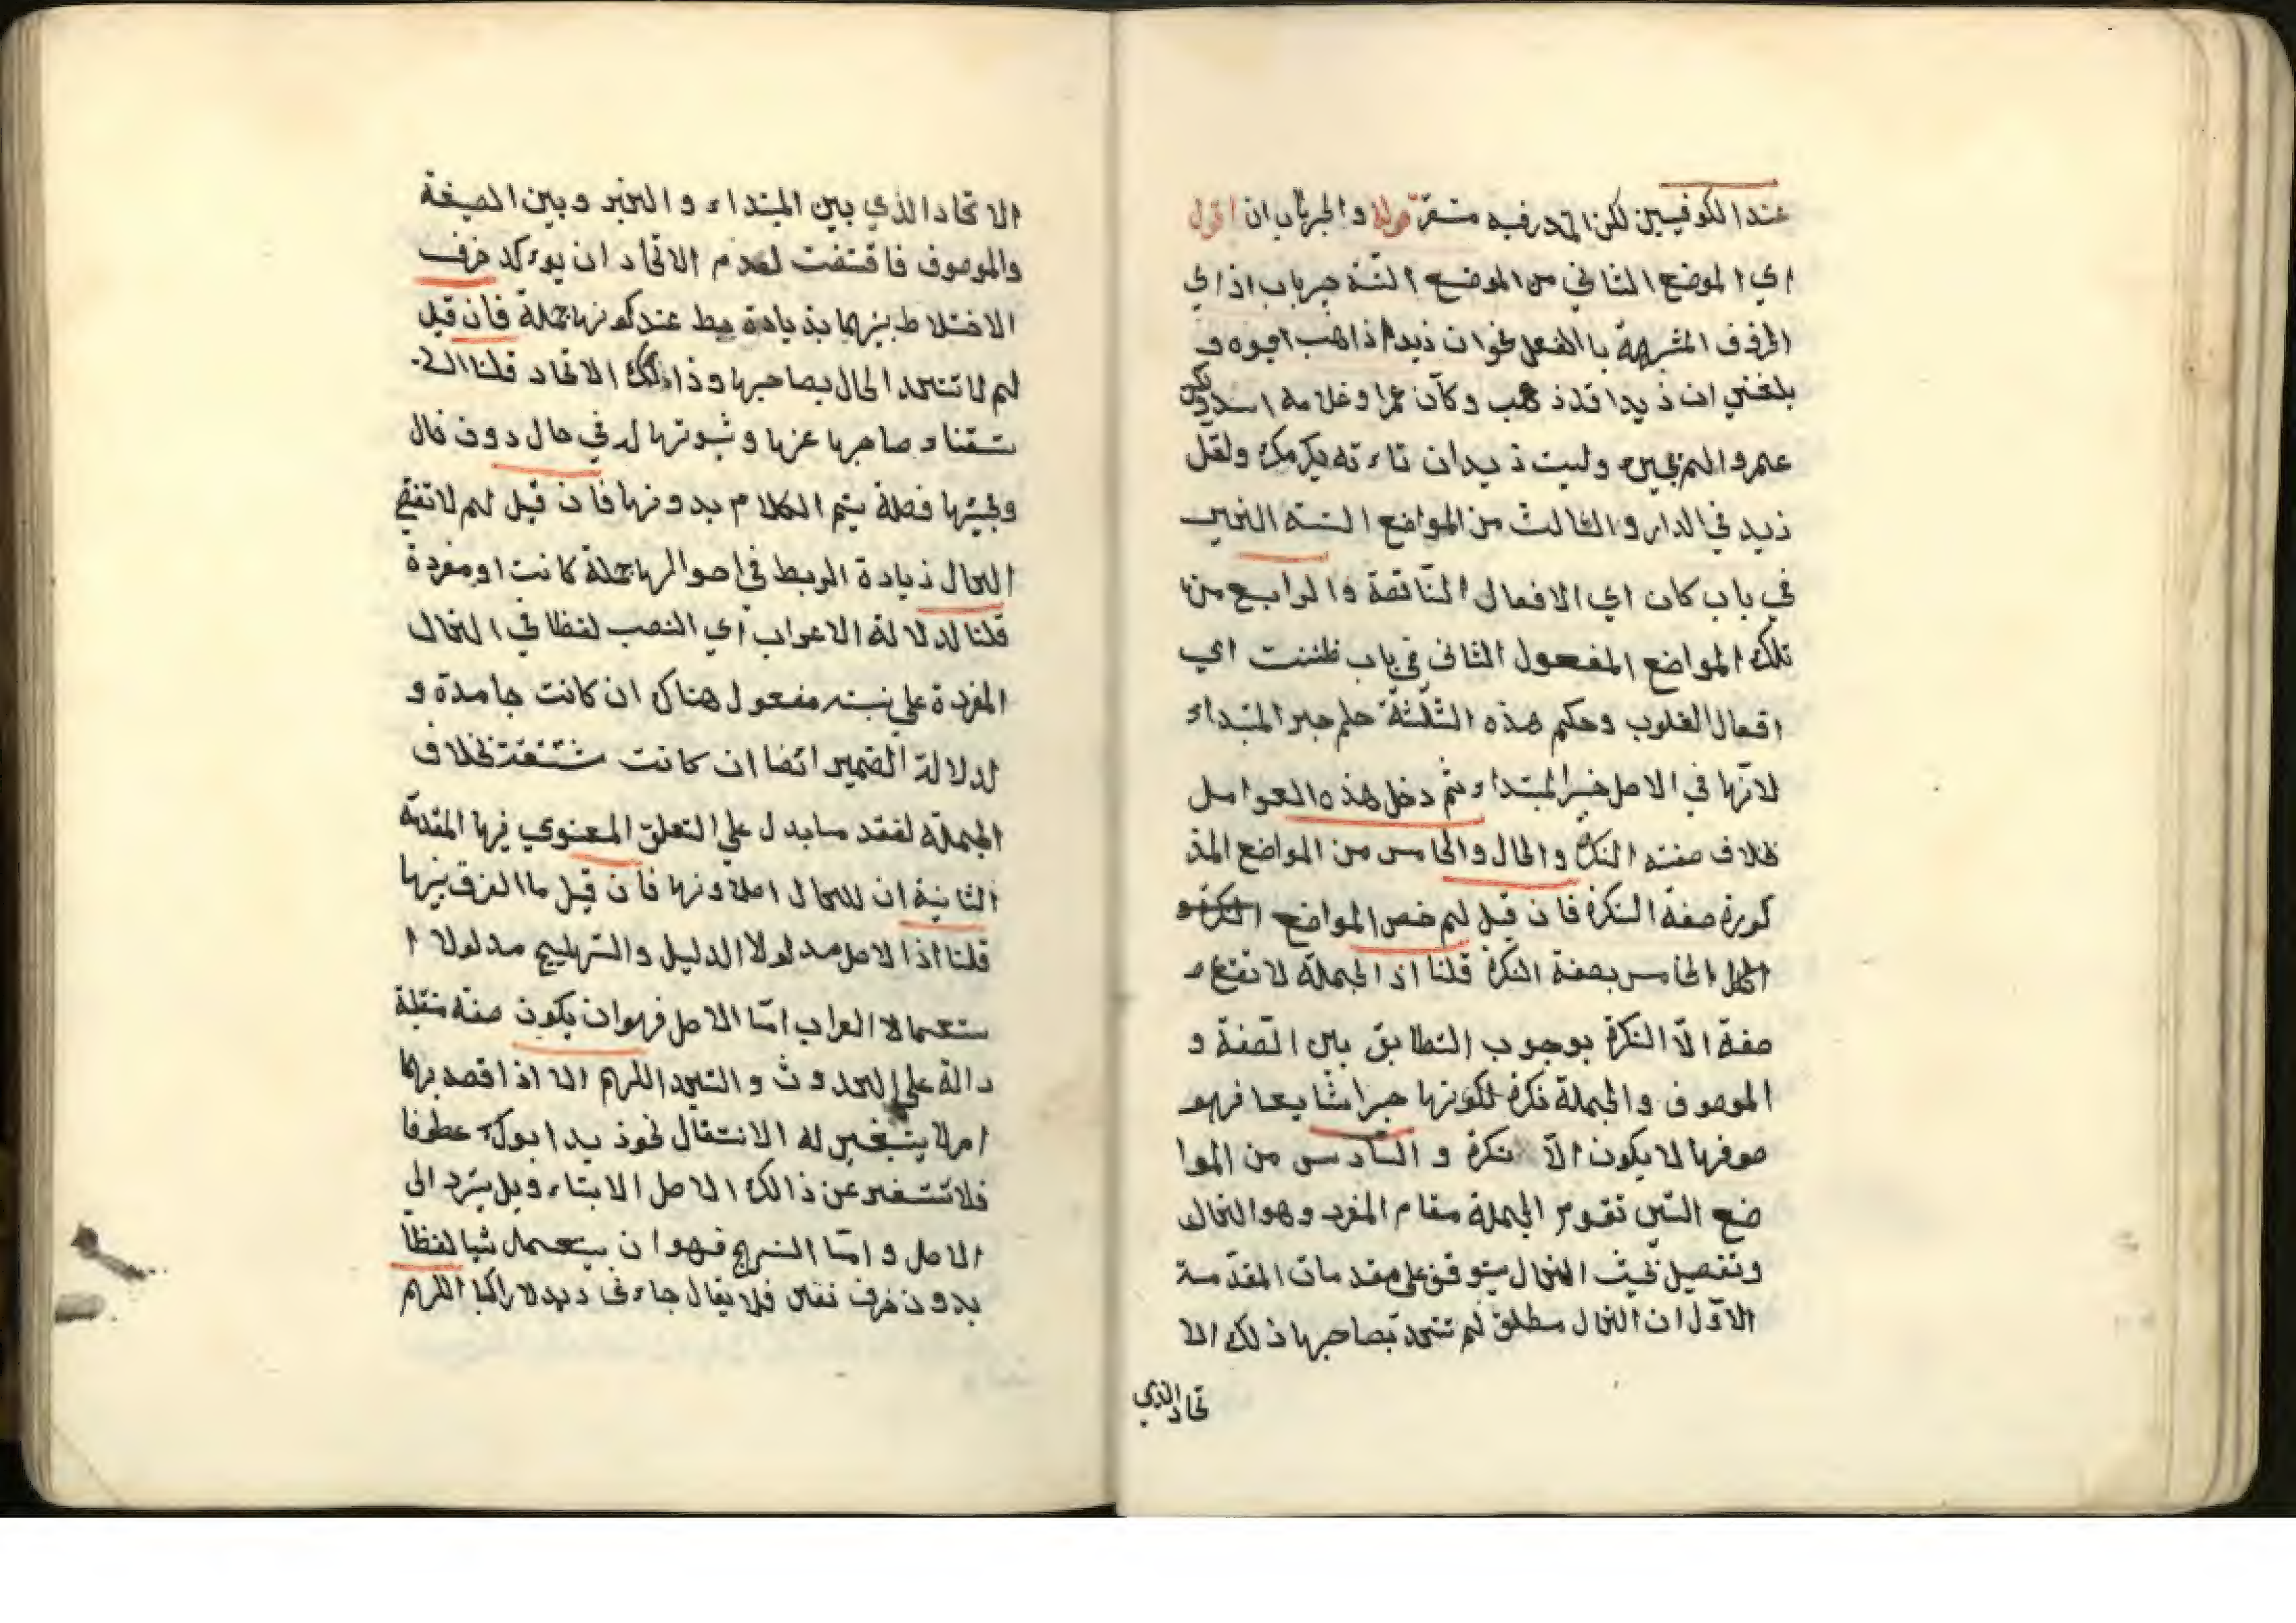 عند الكوفيين لكن المقدر فيه مستقر قوله والخبر باب ان اقول
اي الموضع الثاني من الموضع الستة خبر باب اذ اي
الحروف المشبهة باالفعل نحو ان ذيدا ذاهب ابوه و
بلغني ان ذيدا قد ذهب وكأن عمرا وغلامه اسد ولكن
عمرو وليت ذيدان تاءته يكرمك ولعل
ذيد في الدار والثالث من المواضع الستة الخبر
في باب كان اي الافعال الناقصة والرابع من
تلك المواضع المفعول الثاني في باب ظننت اي
افعال القلوب وحكم هذه الثلثة حكم خبر المبتداء
لانها في الاصل خبر المبتداء ثم دخل هذه العوامل
بخلاف صفة النكرة والحال والخامس من المواضع المذ
كورة صفة النكرة فان قيل لم خص المواضع
الخامس بصفة النكرة قلنا اذ الجملة لا تقع
صفة الّا النكرة بوجوب التطابق بين الصفة و
الموصوف والجملة نكرة لكونها خبرا شايعا فهو
صوفها لا يكون الّا نكرة و السادس من الموا
ضع التين تقوم الجملة مقام المفرد وهو الحال
وتفصيل بحيث الحال يتوقف على مقدمات المقدمة
الاول ان الحال مطلق لم تتحد بصاحبها ذلك الا
تحاد الذي
الاتحاد الذي بين المبتداء والخبر وبين الصيغة
والموصوف فاقتضت لعدم الاتحاد ان يوءكد حرف
الاختلاط بينهما بذيادة ربط عند كونها جملة فان قيل
لم لا تتحد الحال بصاحبها وذالك الاتحاد قلنا
صاحبها عنها وثبوتها له في حال دون حال
ومجيئها فضلة يتم الكلام بدونها فان قيل لم لا تقتض
الحال ذيادة الربط في احوالها جملة كانت او مفردة
قلنا لدلالة الاعراب اي النصب لفظا في الحال
المفردة على نسبته مفعول هناك ان كانت جامدة و
لدلالة الضمير ايضا ان كانت مشتقة بخلاف
الجملة لفقد ما يدل على التعلق المعنوي فيها المقدمة
الثانية ان للحال اصلا ونها فان قيل ما الفرق بينها
قلنا اذا لاصل مدلولا الدليل و مدلولا ا
ستعمالا العراب امّا الاصل فهو ان يكون صفة منقلة
دالة على الحدوث و التجدد اللهم الا اذا قصد بها
امرلا يتبغير له الانتقال نحو ذيد ابوك عطوفا
فلا تستغير عن ذالك الاصل الابتاء وبل يترد الى
الاصل وامّا النهج فهو ان يستعمل لفظا
بدون حرف نفي فلا يقال جاءنى ديد لا راكبا اللهم